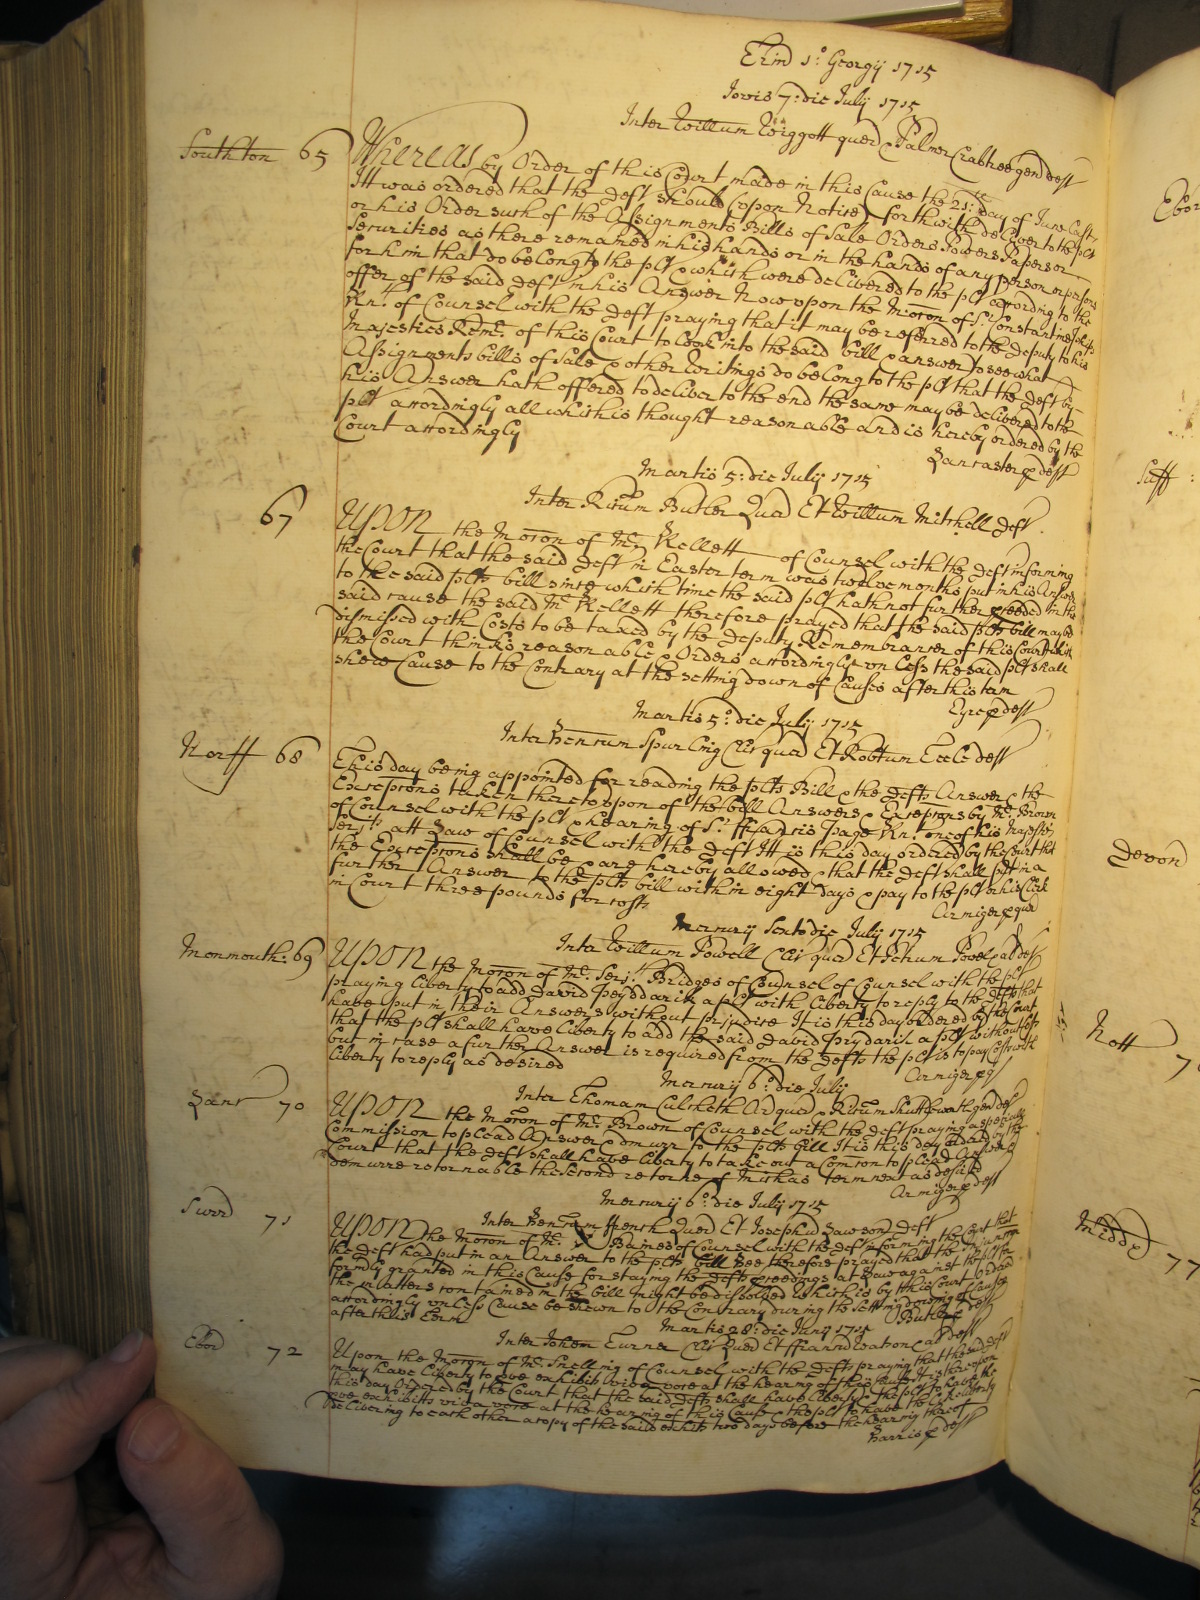 Trin 1o Georgij 1715
Jovis 7o: die July 1715
Inter Willum Wiggott quer & Palmer Crabtree gen deft
Southton 65 Whereas by Order of this Court made in this Cause the 21st: day of June last
Itt was ordered that the deft should (upon Notice) forthwith deliver to the plt
or his Order such of the Assignments Bills of Sale Orders Powers Papers or
Securities as there remained in his hands or in the hands of any person or persons
for him that do belong to the plt & which were delivered to the plt according to the
offer of the said deft in his Answer Now upon the Mocon of Sr. Constantine Phipps
Knt. of Counsel with the deft praying that it may be referred to the deputy to his
Majesties Remr. of this Court to look into the said bill & answer & to see what
Assignments bills of Sale & other Writings do belong to the plt that the deft by
his Answer hath offered to deliver to the end the same may be delivered to the
plt accordingly all which is thought reasonable and is hereby ordered by the
Court accordingly
Lancaster p deft
Martis 5o: die July 1715
Inter Ricum Butler Quer Et Willum Mitchell deft
67 UPON the Mocon of Mr. Kellett of Counsel with the deft informing
the Court that the said deft in Easter term was twelve months put in his Answer
to the said plts bill since which time the said plt hath not further pceeded in the
said cause the said Mr. Kellett therefore prayed that the said plts bill may be
dismissed with Costs to be taxed by the deputy Remembrancer of this Court which
the Court thinks reasonable & Orders accordingly unless the said plt shall
shew Cause to the Contrary at the setting down of Causes after this term
Eyre p deft
Martis 5o: die July 1715
Inter Henrum Spurling Clis quer Et Robtum Eccle deft
Norff 68 This day being appointed for reading the plts Bill & the defts Answer & the
Excepcons taken thereto upon of the bill Answers & Excepcons by Mr. Brown
of Counsel with the plt & hearing of Sr. ffrancis Page Knt. one of his Majesties
Serjts. att Law of Counsel with the deft Itt is this day ordered by the Court that
the Excepcons shall be & are hereby allowed & that the deft shall put in a
further Answer to the plts bill within eight days & pay to the plt or his Clerk
in Court three pounds for costs
Armiger p quer
Mercurij Sexto die July 1715
Inter Willum Powell Clis quer Et Petrum Powel & al deft
Monmouth: 69 UPON the Mocon of Mr. Serjt. Bridges of Counsel of Counsel with the plt
praying liberty to add David a plt with liberty to reply to the defts that
have put in their Answers without prejudice It is this day ordered by the Court
that the plt shall have liberty to add the said David a plt without costs
but in case a further Answer is required from the defts the plt is to pay Costs with
liberty to reply as desired
Armiger p q
Mercurij 6o: die July
Inter Thomam Culcheth Ar quer & Ricum Shuttleworth gen deft
Lanc 70 UPON the Mocon of Mr. Brown of Counsel with the deft praying a special
Commission to plead Answer & demurr to the plts bill It is this day ordered by the
Court that the deft shall have liberty to take out a Comcon to plead Answer &
demurre retornable the second retorne of Michas term next as desired
Armiger p deft
Mercurij 6o: die July 1715
Inter Henrum ffrench Quer Et Josephu Lawson deft
Surr 71 UPON the Mocon of Mr. Baines of Counsel with the deft informing the Court that
the deft had put in an Answer to the plts bill hee therefore prayed that the Injuncon
formerly granted in this Cause for staying the defts pceedings at Law against the plt for
the matters contained in the bill might be dissolved which is by this Court ordered
accordingly unless Cause be shewn to the Contrary during the setting down of Causes
after this Term
Butler p deft
Martis 28o: die Juny 1715
Inter Johem Turner Clis Quer Et ffranc Watson & al deft
Ebor 72 Upon the Mocon of Mr. Snelling of Counsel with the defts praying that the deft
may have liberty to pve exhibits viva voce at the hearing of this Cause It is thereupon
this day Ordered by the Court that the said defts shall have liberty to
pve exhibits viva voce at the hearing of this Cause & the plt to have the like liberty
delivering to each other a copy of the said exhits two days before the hearing thereof
Harris p deft
Ebor
Suff:
Devon
Nott 7
Middx 77